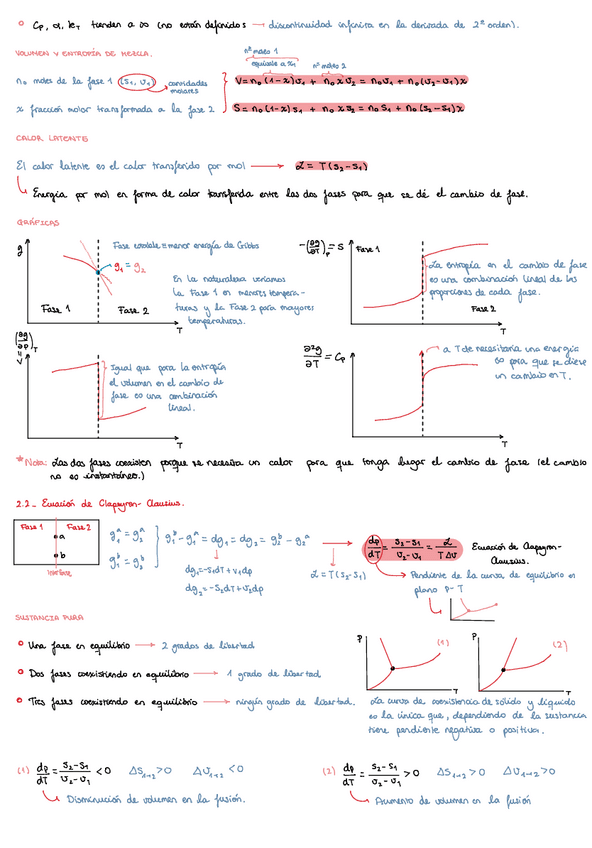 Cp, α, kT tienden a ∞ (no están definidos → discontinuidad infinita en la derivada de 2º orden).
VOLUMEN Y ENTROPÍA DE MEZCLA.
nº moles 1
equivale a x1
nº moles 2
n0 moles de la fase 1 (s1, v1) → cantidades molares
V = n0(1-x)v1 + n0 x v2 = n0v1 + n0(v2-v1)x
x fracción molar transformada a la fase 2
S = n0(1-x)s1 + n0 x s2 = n0s1 + n0(s2-s1)x
CALOR LATENTE
El calor latente es el calor transferido por mol → L = T(s2-s1)
Energía por mol en forma de calor transferida entre las dos fases para que se dé el cambio de fase.
GRÁFICAS
g
Fase estable = menor energía de Gibbs
g1 = g2
En la naturaleza veríamos
la Fase 1 en menores tempera-
turas y la Fase 2 para mayores
temperaturas.
Fase 1
Fase 2
T
-(∂g/∂T)P = s
Fase 1
La entropía en el cambio de fase
es una combinación lineal de las
proporciones de cada fase.
Fase 2
T
(∂g/∂P)T = v
Igual que para la entropía
el volumen en el cambio de
fase es una combinación
lineal.
T
∂²g/∂T = CP
a T de necesitaría una energía
∞ para que se diese
un cambio en T.
T
*Nota: Las dos fases coexisten porque se necesita un calor para que tenga lugar el cambio de fase (el cambio
no es instantáneo.)
2.2_ Ecuación de Clapeyron-Clausius.
Fase 1
Fase 2
a
b
Interfase
g1^a = g2^a
g1^b = g2^b
g1^b - g1^a = dg1 = dg2 = g2^b - g2^a
dg1 = -s1dT + v1dp
dg2 = -s2dT + v2dp
dp/dT = (s2-s1)/(v2-v1) = L/(TΔv)
L = T(s2-s1)
Ecuación de Clapeyron-
Clausius.
Pendiente de la curva de equilibrio en
plano P-T
SUSTANCIA PURA
Una fase en equilibrio → 2 grados de libertad
Dos fases coexistiendo en equilibrio → 1 grado de libertad
Tres fases coexistiendo en equilibrio → ningún grado de libertad.
P
(1)
T
P
(2)
T
La curva de coexistencia de sólido y líquido
es la única que, dependiendo de la sustancia
tiene pendiente negativa o positiva.
(1) dp/dT = (s2-s1)/(v2-v1) < 0 Δs1→2 > 0 Δv1→2 < 0
Disminución de volumen en la fusión.
(2) dp/dT = (s2-s1)/(v2-v1) > 0 Δs1→2 > 0 Δv1→2 > 0
Aumento de volumen en la fusión